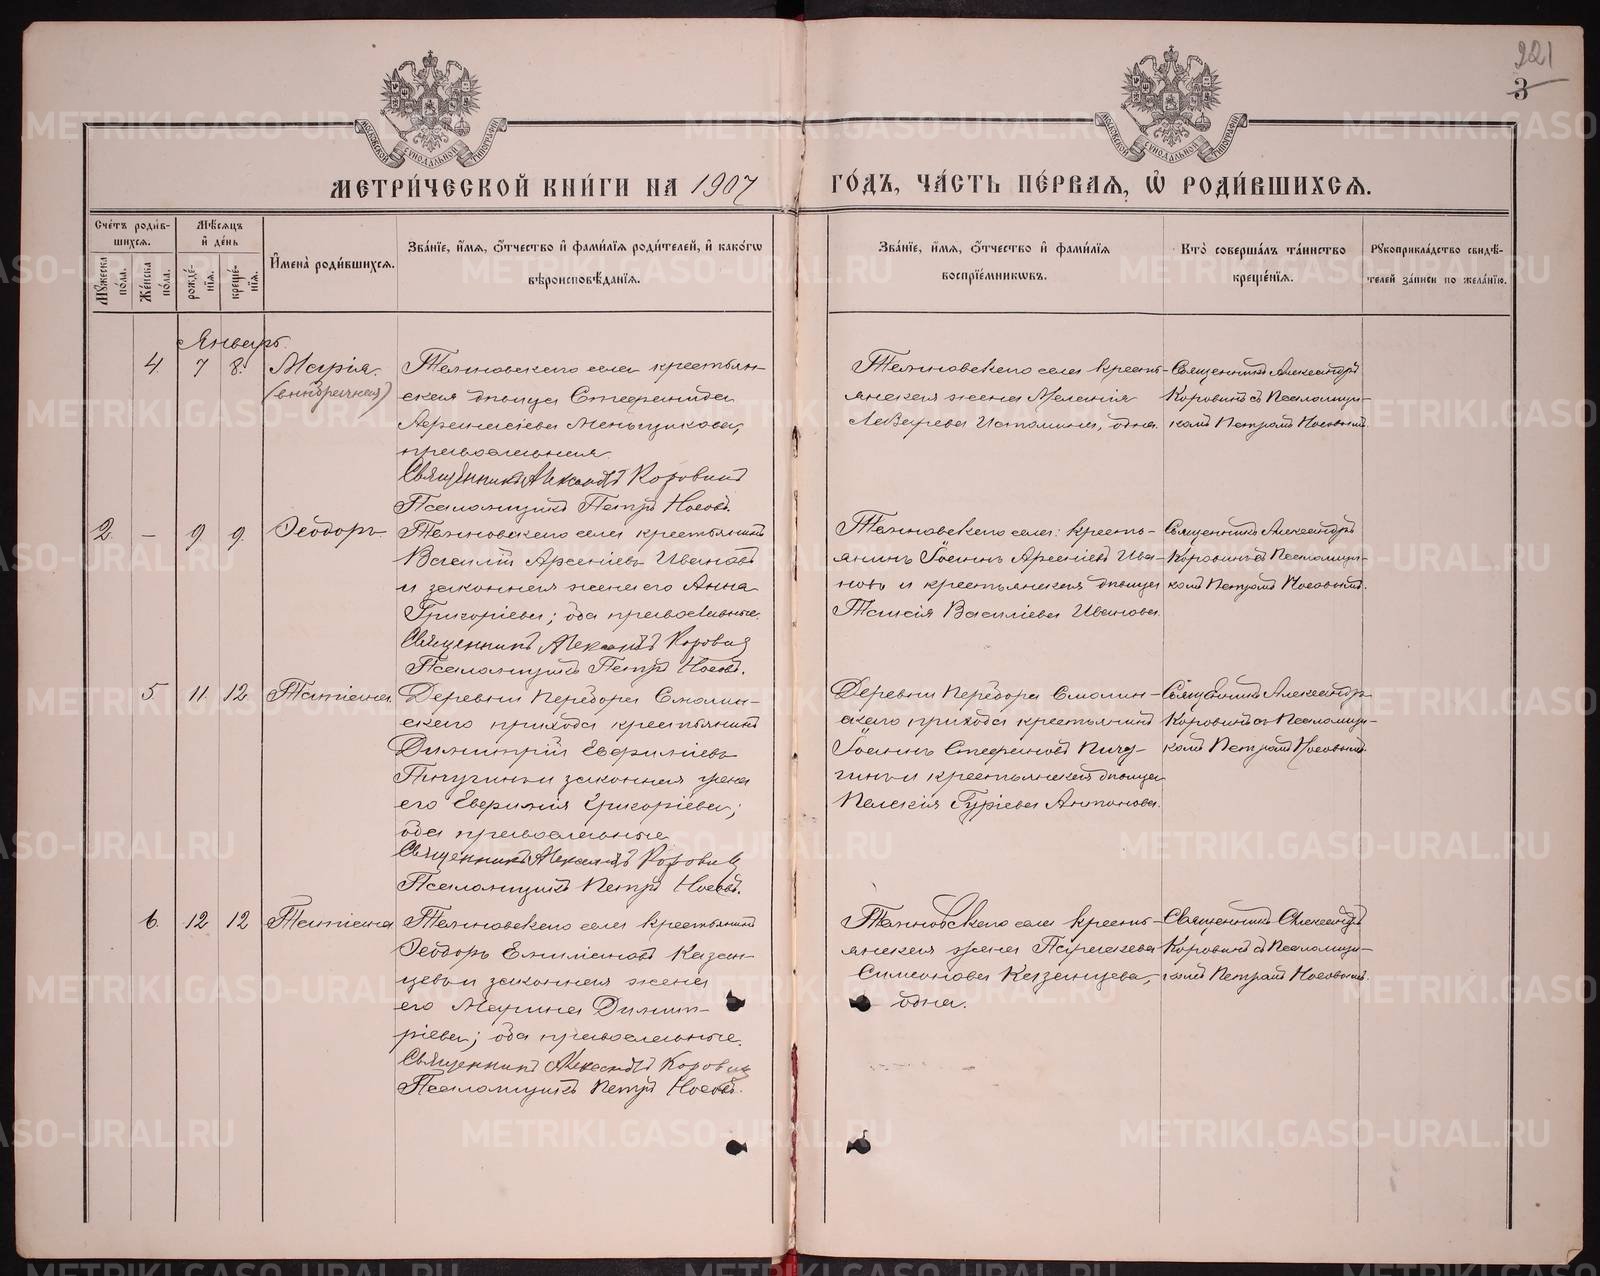 221
3
МЕТРИ́ЧЕСКОЙ КНИ́ГИ НА 1907 ГО́ДЪ, ЧА́СТЬ ПЕ́РВАЯ, Ѡ҆ РОДИ́ВШИХСЯ.
Сче́тъ роди́вшихся.
Му́жеска по́ла.
Же́нска по́ла.
Мѣ́сяцъ и҆ де́нь
рожде́нїя.
креще́нїя.
И҆мена̀ роди́вшихся.
Зва́нїе, и҆́мя, ѻ҆́тчество и҆ фами́лїя роди́телей, и҆ како́гѡ
вѣроисповѣ́данїя.
Зва́нїе, и҆́мя, ѻ҆́тчество и҆ фами́лїя
воспрїе́мниковъ.
Кто̀ соверша́лъ та́инство
креще́нїя.
Рукоприкла́дство свидѣ́-
телей за́писи по жела́нїю.
Январь
4. 7 8. Марія.
(внѣбрачная)
села крестьян-
ская дѣвица Стефанида
Меньщикова,
православная.
Священникъ Александръ Коровинъ
Псаломщикъ Петръ Носовъ.
села кресть-
янская жена Меланія
Истомина, одна.
Священникъ Александръ
Коровинъ съ Псаломщи-
комъ Петромъ Носовымъ.
2. — 9 9. Ѳеодоръ
села крестьянинъ
Василій Арсеніевъ Ивановъ
и законная жена его Анна
Григоріева; оба православные.
Священникъ Александръ Коровинъ
Псаломщикъ Петръ Носовъ.
села кресть-
янинъ Іоаннъ Арсеніевъ Ива-
новъ и крестьянская дѣвица
Таисія Василіева Иванова.
Священникъ Александръ
Коровинъ съ Псаломщи-
комъ Петромъ Носовымъ.
5 11. 12. Татіана.
Деревни Перебора Смолин-
скаго прихода крестьянинъ
Димитрій Евфиміевъ
Пичугинъ и законная жена
его Евфимія Григоріева;
оба православные
Священникъ Александръ Коровинъ
Псаломщикъ Петръ Носовъ.
Деревни Перебора Смолин-
скаго прихода крестьянинъ
Іоаннъ Стефановъ Пичу-
гинъ и крестьянская дѣвица
Пелагія Гуріева Антонова.
Священникъ Александръ
Коровинъ съ Псаломщи-
комъ Петромъ Носовымъ.
6. 12 12 Татіана
села крестьянинъ
Ѳеодоръ Емиліановъ Казан-
цевъ и законная жена
его Марина Димит-
ріева; оба православные.
Священникъ Александръ Коровинъ
Псаломщикъ Петръ Носовъ.
села кресть-
янская жена Параскева
Симеонова Казанцева,
одна.
Священникъ Александръ
Коровинъ съ Псаломщи-
комъ Петромъ Носовымъ.
METRIKI.GASO-URAL.RU